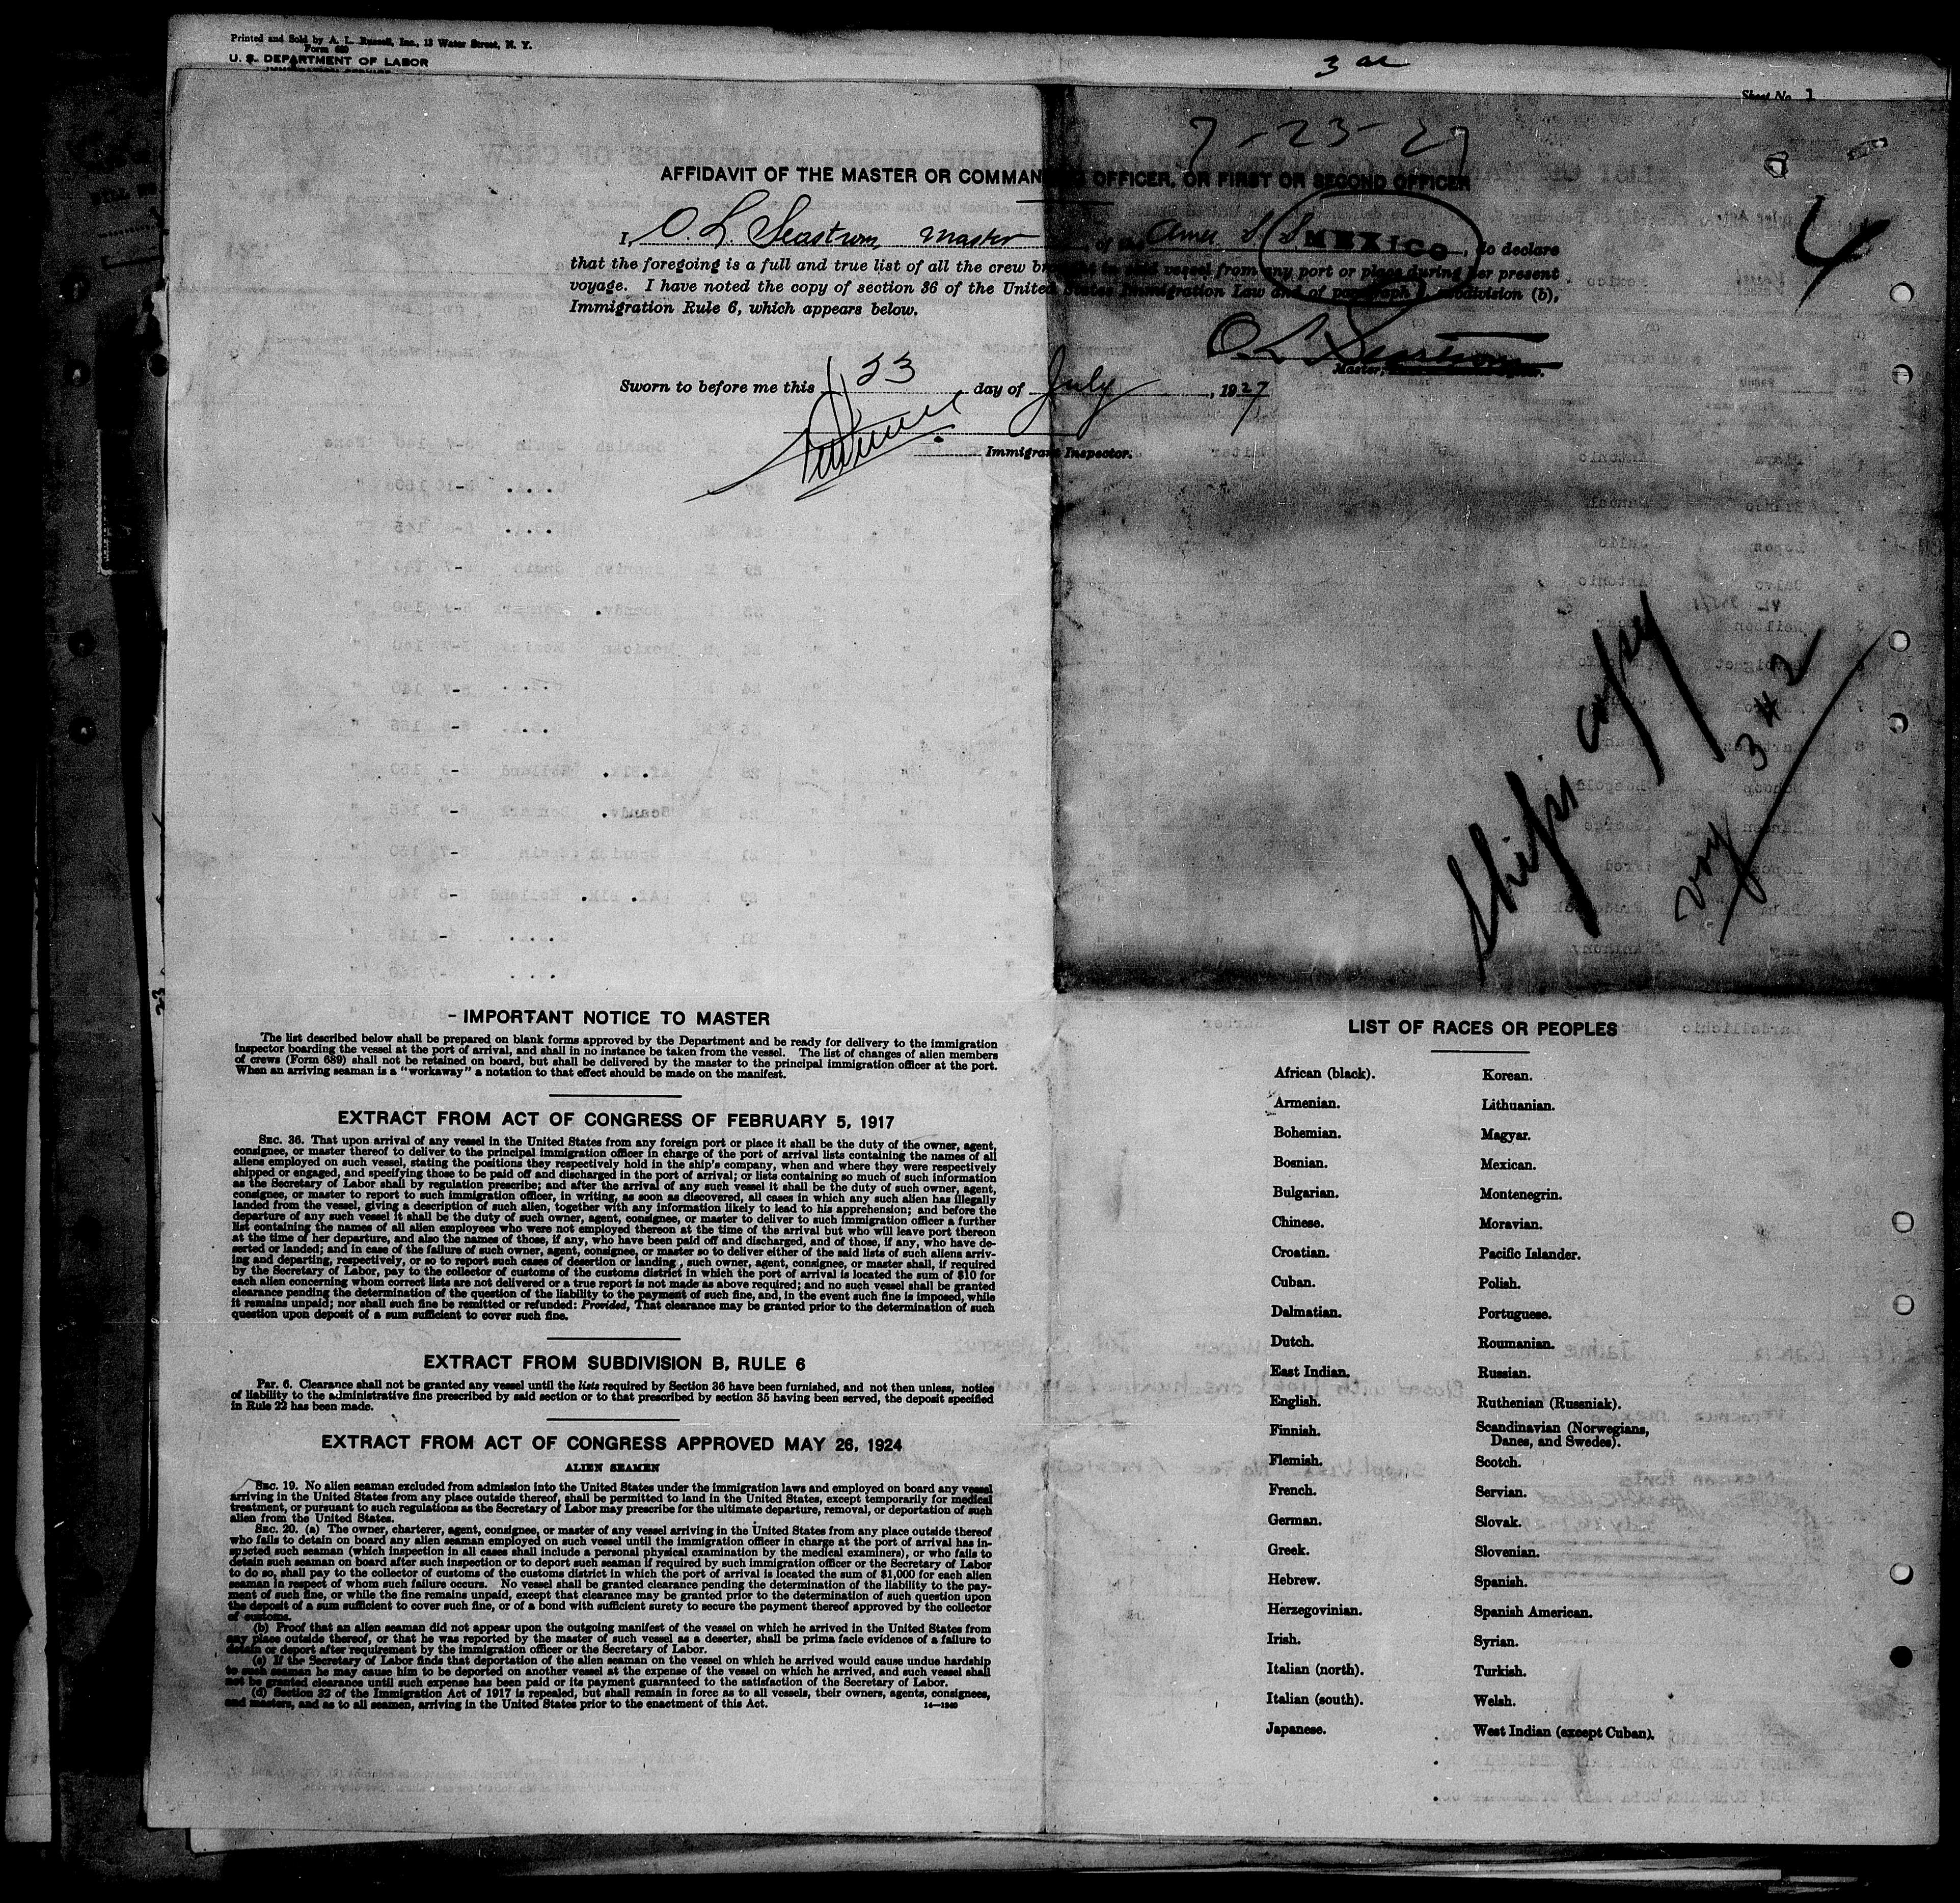 Printed and Sold by A. L. Russell, Inc., 13 Water Street, N. Y.
Form 680
U. S. DEPARTMENT OF LABOR
Sheet No. 1
7-23-27
4
AFFIDAVIT OF THE MASTER OR COMMANDING OFFICER, OR FIRST OR SECOND OFFICER
I, O. L. Seastrom, Master, of the Amer S S MEXICO, do declare
that the foregoing is a full and true list of all the crew brought in said vessel from any port or place during her present
voyage. I have noted the copy of section 36 of the United States Immigration Law and of paragraph 6, subdivision (b),
Immigration Rule 6, which appears below.
O. L. Seastrom
Master,
Sworn to before me this 23 day of July, 1927
Immigrant Inspector.
Ship's copy
voy 3 # 2
- IMPORTANT NOTICE TO MASTER
The list described below shall be prepared on blank forms approved by the Department and be ready for delivery to the immigration
inspector boarding the vessel at the port of arrival, and shall in no instance be taken from the vessel. The list of changes of alien members
of crews (Form 689) shall not be retained on board, but shall be delivered by the master to the principal immigration officer at the port.
When an arriving seaman is a "workaway" a notation to that effect should be made on the manifest.
EXTRACT FROM ACT OF CONGRESS OF FEBRUARY 5, 1917
SEC. 36. That upon arrival of any vessel in the United States from any foreign port or place it shall be the duty of the owner, agent,
consignee, or master thereof to deliver to the principal immigration officer in charge of the port of arrival lists containing the names of all
aliens employed on such vessel, stating the positions they respectively hold in the ship's company, when and where they were respectively
shipped or engaged, and specifying those to be paid off and discharged in the port of arrival; or lists containing so much of such information
as the Secretary of Labor shall by regulation prescribe; and after the arrival of any such vessel it shall be the duty of such owner, agent,
consignee, or master to report to such immigration officer, in writing, as soon as discovered, all cases in which any such alien has illegally
landed from the vessel, giving a description of such alien, together with any information likely to lead to his apprehension; and before the
departure of any such vessel it shall be the duty of such owner, agent, consignee, or master to deliver to such immigration officer a further
list containing the names of all alien employees who were not employed thereon at the time of the arrival but who will leave port thereon
at the time of her departure, and also the names of those, if any, who have been paid off and discharged, and of those, if any, who have de-
serted or landed; and in case of the failure of such owner, agent, consignee, or master so to deliver either of the said lists of such aliens arriv-
ing and departing, respectively, or so to report such cases of desertion or landing, such owner, agent, consignee, or master shall, if required
by the Secretary of Labor, pay to the collector of customs of the customs district in which the port of arrival is located the sum of $10 for
each alien concerning whom correct lists are not delivered or a true report is not made as above required; and no such vessel shall be granted
clearance pending the determination of the question of the liability to the payment of such fine, and, in the event such fine is imposed, while
it remains unpaid; nor shall such fine be remitted or refunded: Provided, That clearance may be granted prior to the determination of such
question upon deposit of a sum sufficient to cover such fine.
EXTRACT FROM SUBDIVISION B, RULE 6
PAR. 6. Clearance shall not be granted any vessel until the lists required by Section 36 have been furnished, and not then unless, notice
of liability to the administrative fine prescribed by said section or to that prescribed by section 35 having been served, the deposit specified
in Rule 22 has been made.
EXTRACT FROM ACT OF CONGRESS APPROVED MAY 26, 1924
ALIEN SEAMEN
SEC. 19. No alien seaman excluded from admission into the United States under the immigration laws and employed on board any vessel
arriving in the United States from any place outside thereof, shall be permitted to land in the United States, except temporarily for medical
treatment, or pursuant to such regulations as the Secretary of Labor may prescribe for the ultimate departure, removal, or deportation of such
alien from the United States.
SEC. 20. (a) The owner, charterer, agent, consignee, or master of any vessel arriving in the United States from any place outside thereof
who fails to detain on board any alien seaman employed on such vessel until the immigration officer in charge at the port of arrival has in-
spected such seaman (which inspection in all cases shall include a personal physical examination by the medical examiners), or who fails to
detain such seaman on board after such inspection or to deport such seaman if required by such immigration officer or the Secretary of Labor
to do so, shall pay to the collector of customs of the customs district in which the port of arrival is located the sum of $1,000 for each alien
seaman in respect of whom such failure occurs. No vessel shall be granted clearance pending the determination of the liability to the pay-
ment of such fine, or while the fine remains unpaid, except that clearance may be granted prior to the determination of such question upon
the deposit of a sum sufficient to cover such fine, or of a bond with sufficient surety to secure the payment thereof approved by the collector
of customs.
(b) Proof that an alien seaman did not appear upon the outgoing manifest of the vessel on which he arrived in the United States from
any place outside thereof, or that he was reported by the master of such vessel as a deserter, shall be prima facie evidence of a failure to
detain or deport after requirement by the immigration officer or the Secretary of Labor.
(c) If the Secretary of Labor finds that deportation of the alien seaman on the vessel on which he arrived would cause undue hardship
to such seaman he may cause him to be deported on another vessel at the expense of the vessel on which he arrived, and such vessel shall
not be granted clearance until such expense has been paid or its payment guaranteed to the satisfaction of the Secretary of Labor.
(d) Section 32 of the Immigration Act of 1917 is repealed, but shall remain in force as to all vessels, their owners, agents, consignees,
and masters, and as to all seamen, arriving in the United States prior to the enactment of this Act.
14-1240
LIST OF RACES OR PEOPLES
African (black). Korean.
Armenian. Lithuanian.
Bohemian. Magyar.
Bosnian. Mexican.
Bulgarian. Montenegrin.
Chinese. Moravian.
Croatian. Pacific Islander.
Cuban. Polish.
Dalmatian. Portuguese.
Dutch. Roumanian.
East Indian. Russian.
English. Ruthenian (Russniak).
Finnish. Scandinavian (Norwegians,
Danes, and Swedes).
Flemish. Scotch.
French. Servian.
German. Slovak.
Greek. Slovenian.
Hebrew. Spanish.
Herzegovinian. Spanish American.
Irish. Syrian.
Italian (north). Turkish.
Italian (south). Welsh.
Japanese. West Indian (except Cuban).